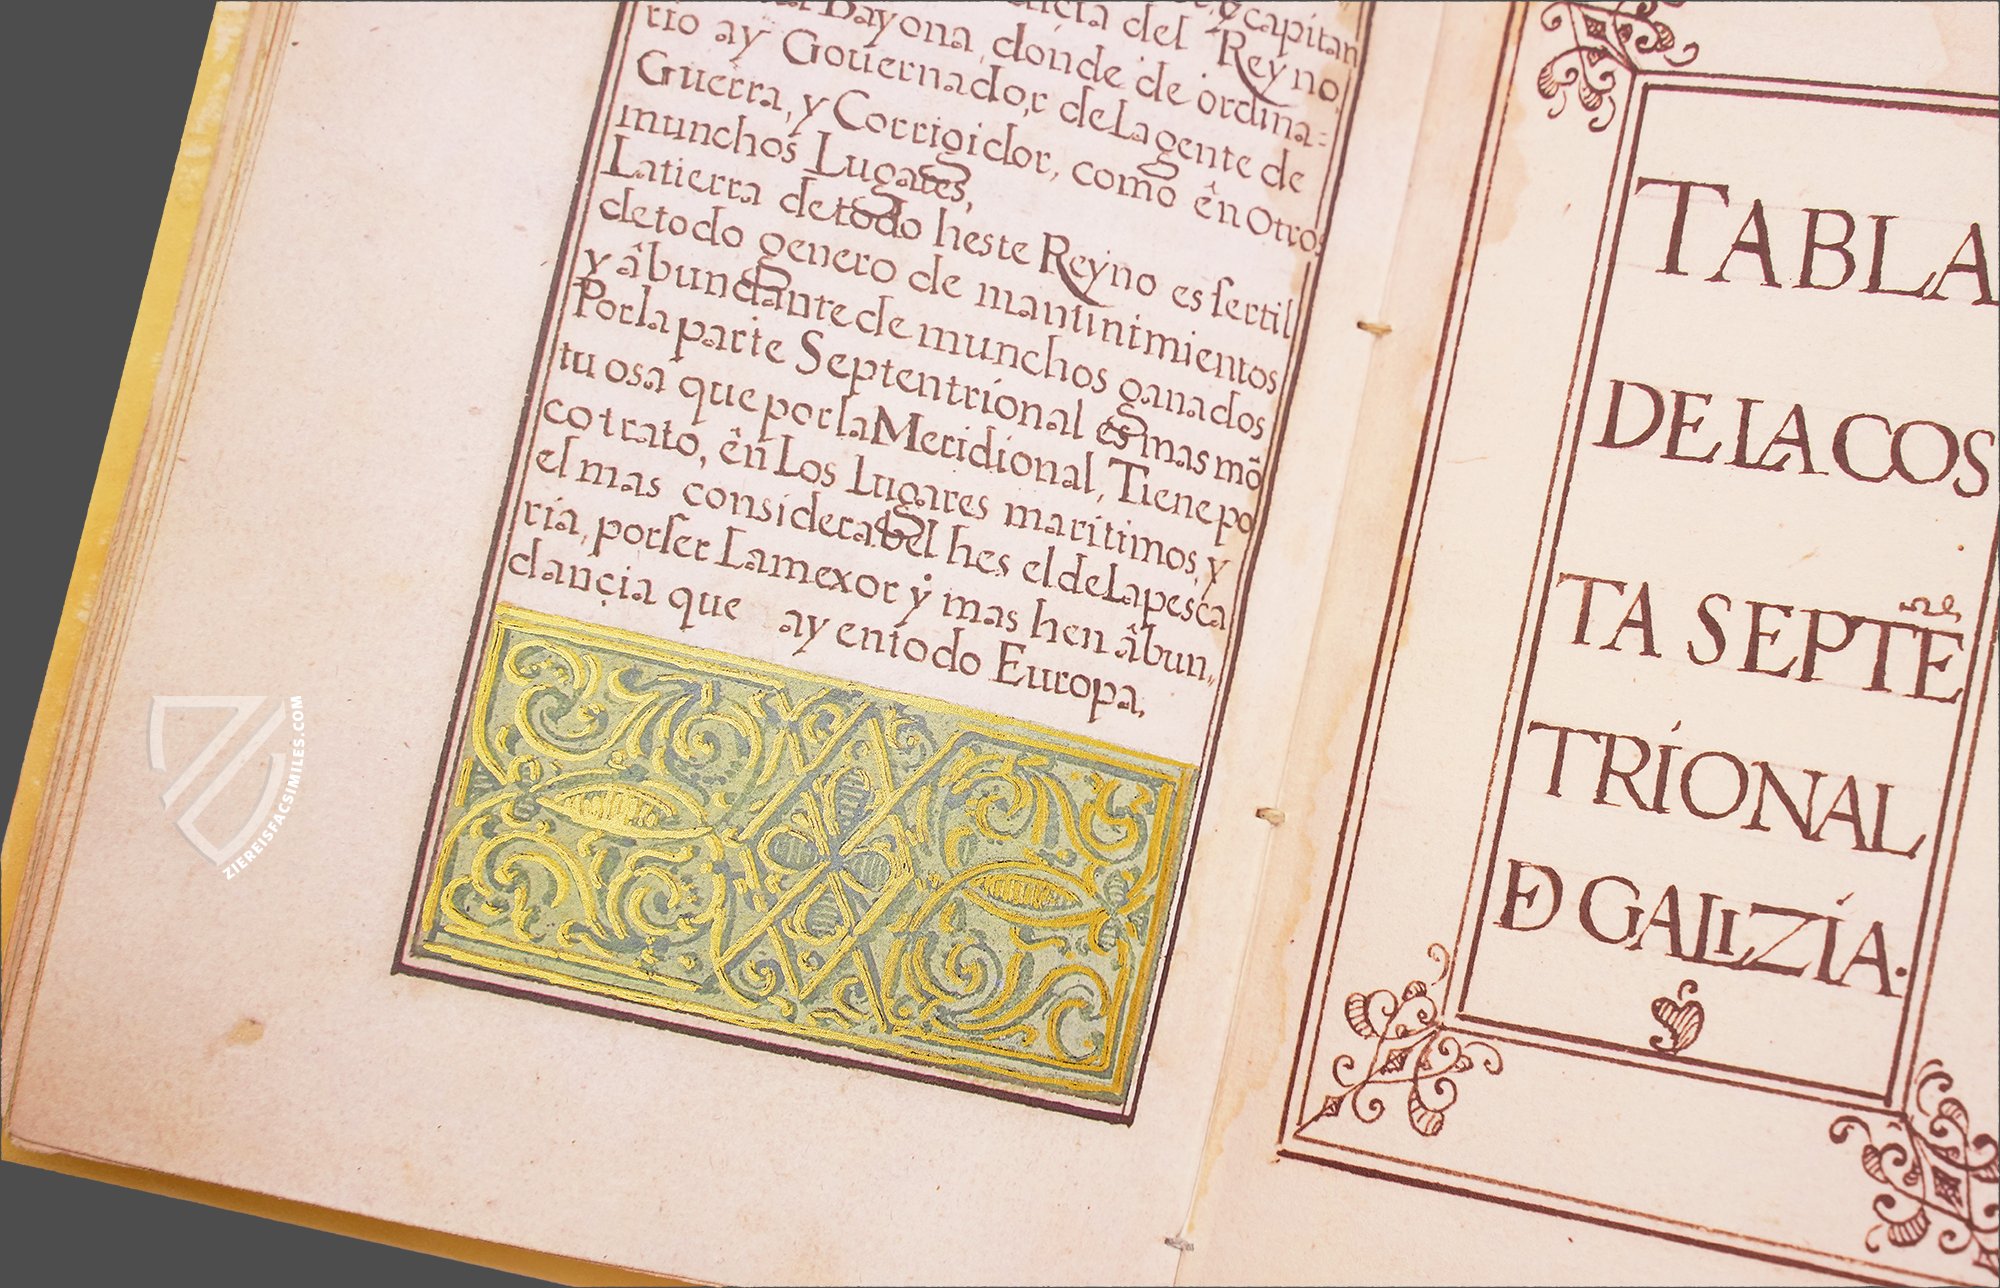 del Reyno,
rio ay Gouernador de La gente de
Guerra, y Corrigidor, como ên Otros
munchos Lugares,
La tierra de todo heste Reyno es fertil
de todo genero de mantinimientos
y âbundante de munchos ganados
Por la parte Septentrional es mas mõ
tu osa que por la Meridional, Tiene po
co trato, ên Los Lugares maritimos, y
el mas considerabel hes el de La pesca
ria, por ser La mexor ẏ mas hen âbun,,
dançia que ay en todo Europa.
TABLA
DE LA COS
TA SEPTẼ
TRÍONAL
DE GALIZÍA.
ZIEREISFACSIMILES.COM